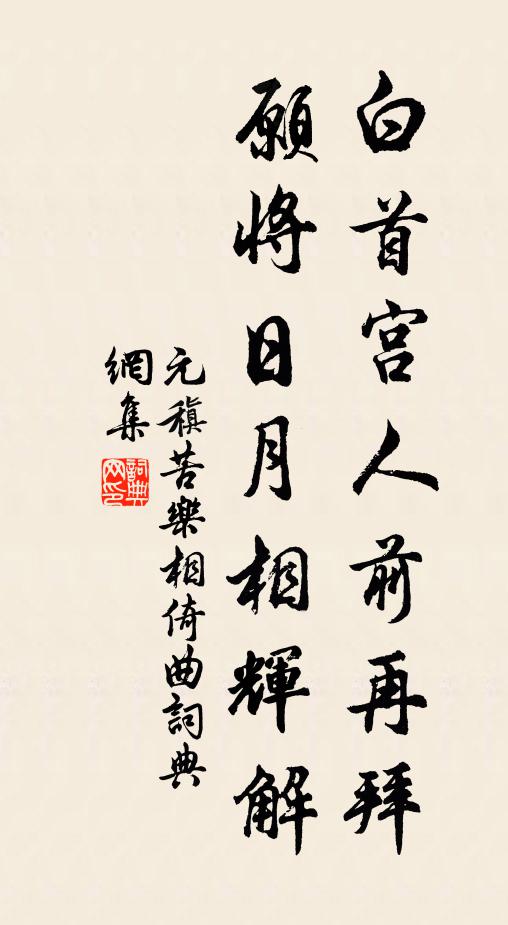 白首宫人前再拜
願將日月相輝解
元稹苦樂相倚曲詞典
網集
詞典網印